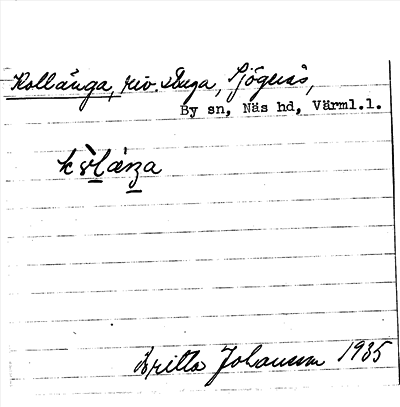 Kollänga, riv. stuga, Sjögerås,
By sn, Näs hd, Värml.l.
Britta Johansson 1935